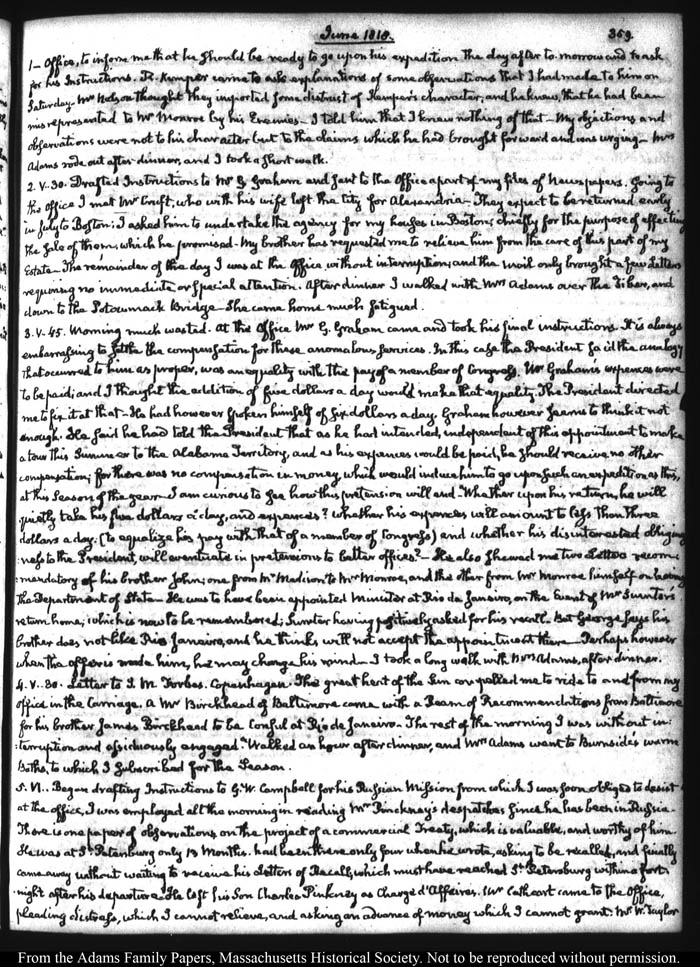 June 1818.
359.
1— Office, to inform me that he should be ready to go upon his expedition the day after to-morrow and to ask
for his Instructions. R. Kemper came to ask explanations of some observations that I had made to him on
Saturday. Mr Nelson thought they imported some distrust of Kemper's character, and he knew, that he had been
misrepresented to Mr Monroe by his Enemies— I told him that I knew nothing of that— My objections and
observations were not to his character but to the claims which he had brought forward and was urging— Mrs
Adams rode out after dinner, and I took a short walk.
2. V.30. Drafted Instructions to Mr G. Graham and sent to the Office a part of my files of Newspapers. Going to
the office I met Mr Cruft, who with his wife left the City for Alexandria— They expect to be returned early
in July to Boston; I asked him to undertake the agency for my houses in Boston; chiefly for the purpose of effecting
the sale of them, which he promised— My brother has requested me to relieve him from the care of this part of my
Estate— The remainder of the day I was at the Office without interruption; and the mail only brought a few Letters
requiring no immediate or special attention. After dinner I walked with Mrs Adams over the Tiber, and
down to the Potowmack Bridge— She came home much fatigued.
3. V.45. Morning much wasted. At the Office Mr G. Graham came and took his final instructions. It is always
embarrassing to settle the compensation for these anomalous services. In this case the President said the analogy
that occurred to him as proper, was an equality with the pay of a member of Congress. Mr Graham's expences were
to be paid; and I thought the addition of five dollars a day would make that equality. The President directed
me to fix it at that— He had however spoken himself of six dollars a day. Graham however seems to think it not
enough. He said he had told the President that as he had intended, independent of this appointment to make
a tour this Summer to the Alabama Territory, and as his expences would be paid, he should receive no other
compensation; for there was no compensation in money, which would induce him to go upon such an expedition as this,
at this Season of the year— I am curious to see how this pretension will end— Whether upon his return, he will
quietly take his five dollars a day, and expences? Whether his expences will amount to less than three
dollars a day. (to equalize his pay with that of a member of Congress) and whether his disinterested obliging-
ness to the President, will eventuate in pretensions to better offices?— He also shewed me two Letters recom-
:mendatory of his brother John; one from Mr Madison to Mr Monroe, and the other from Mr Monroe himself on leaving
the Department of State— He was to have been appointed Minister at Rio de Janeiro, on the Event of Mr Sumter's
return home; which is now to be remembered; Sumter having positively asked for his recall. But George says his
brother does not like Rio Janeiro, and he thinks will not accept the appointment there— Perhaps however
when the offer is made him, he may change his mind— I took a long walk with Mrs Adams, after dinner.
4. V..30. Letter to J. M. Forbes. Copenhagen. The great heat of the Sun compelled me to ride to and from my
office in the Carriage. A Mr Birckhead of Baltimore came with a Ream of Recommendations from Baltimore
for his brother James Birckhead to be Consul at Rio de Janeiro— The rest of the morning I was without in-
:terruption and assiduously engaged. Walked an hour after dinner, and Mrs Adams went to Burnside's warm
Baths, to which I subscribed for the Season.
5. VI.. Began drafting Instructions to G. W. Campbell for his Russian Mission from which I was soon obliged to desist
at the office, I was employed all the morning in reading Mr Pinckney's despatches since he has been in Russia.
There is one paper of observations, on the project of a commercial Treaty, which is valuable, and worthy of him.
He was at St Petersburg only 13 Months. had been there only four when he wrote, asking to be recalled, and finally
came away without waiting to receive his Letters of Recall, which must have reached St Petersburg within a fort-
:night after his departure— He left his Son Charles Pinkney as Chargé d'Affaires. Mr Cathcart came to the Office,
pleading distress, which I cannot relieve, and asking an advance of money which I cannot grant. Mr W. Taylor
From the Adams Family Papers, Massachusetts Historical Society. Not to be reproduced without permission.